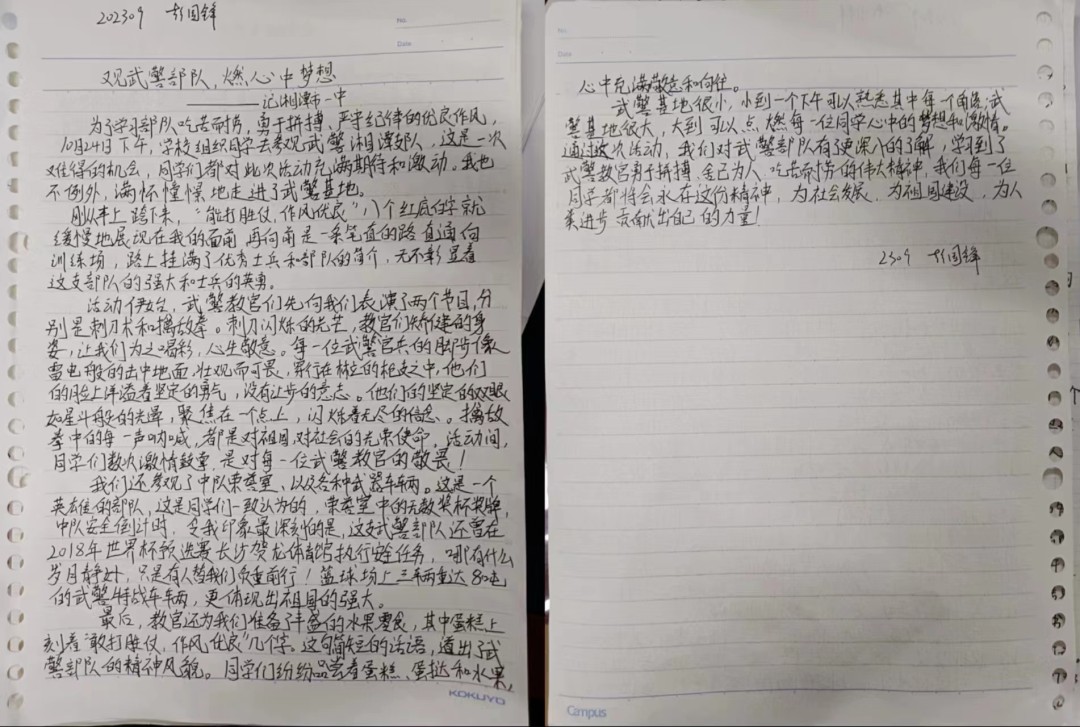 202309 彭国锋
No.
Date
观武警部队，燃心中梦想
——记湘潭市一中
为了学习部队吃苦耐劳，勇于拼搏、严守纪律的优良作风，
10月24日下午，学校组织同学去参观武警湘潭部队，这是一次
难得的机会，同学们都对此次活动充满期待和激动。我也
不例外，满怀憧憬地走进了武警基地。
刚从车上跨下来，“能打胜仗，作风优良”八个红底的字就
缓慢地展现在我的面前，再向前是一条笔直的路直通向
训练场，路上挂满了优秀士兵和部队的简介，无不彰显着
这支部队的强大和士兵的英勇。
活动伊始，武警教官们先向我们表演了两个节目，分
别是刺刀术和擒敌拳。刺刀闪烁的光芒，教官们矫健的身
姿，让我们为之喝彩，心生敬意。每一位武警官兵的脚步像
雷电般的击中地面，壮观而可畏，穿行在林立的枪支之中，他们
的脸上洋溢着坚定的勇气，没有让步的意志。他们的坚定的双眼
如星斗般的光晕，聚焦在一个点上，闪烁着无尽的信念。擒敌
拳中的每一声呐喊，都是对祖国，对社会的光荣使命，活动间，
同学们数次激情鼓掌，是对每一位武警教官的敬畏！
我们还参观了中队荣誉室，以及各种武器车辆。这是一个
英雄的部队，这是同学们一致认为的，荣誉室中的无数奖杯奖牌，
中队安全倒计时，令我印象最深刻的是，这支武警部队还曾在
2018年世界杯预选赛长沙贺龙体育馆执行安全任务，哪有什么
岁月静好，只是有人替我们负重前行！篮球场上三辆重达80吨
的武警特战车辆，更体现出祖国的强大。
最后，教官还为我们准备了丰盛的水果零食，其中蛋糕上
刻着“敢打胜仗，作风优良”几个字。这句简短的话语，道出了武
警部队的精神风貌。同学们纷纷品尝着蛋糕、蛋挞和水果，
KOKUYO
No.
Date
心中充满敬意和向往。
武警基地很小，小到一个下午可以熟悉其中每一个角落；武
警基地很大，大到可以点燃每一位同学心中的梦想和激情。
通过这次活动，我们对武警部队有了更深入的了解，学习到了
武警教官勇于拼搏，舍己为人，吃苦耐劳的伟大精神，我们每一位
同学都将会永存这份精神，为社会发展，为祖国建设，为人
类进步贡献出自己的力量！
2309 彭国锋
Campus